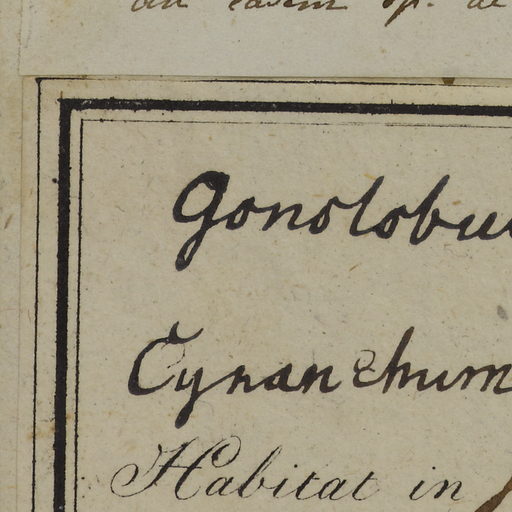 an eadem sp. de
Gonolobu
Cynanchum
Habitat in